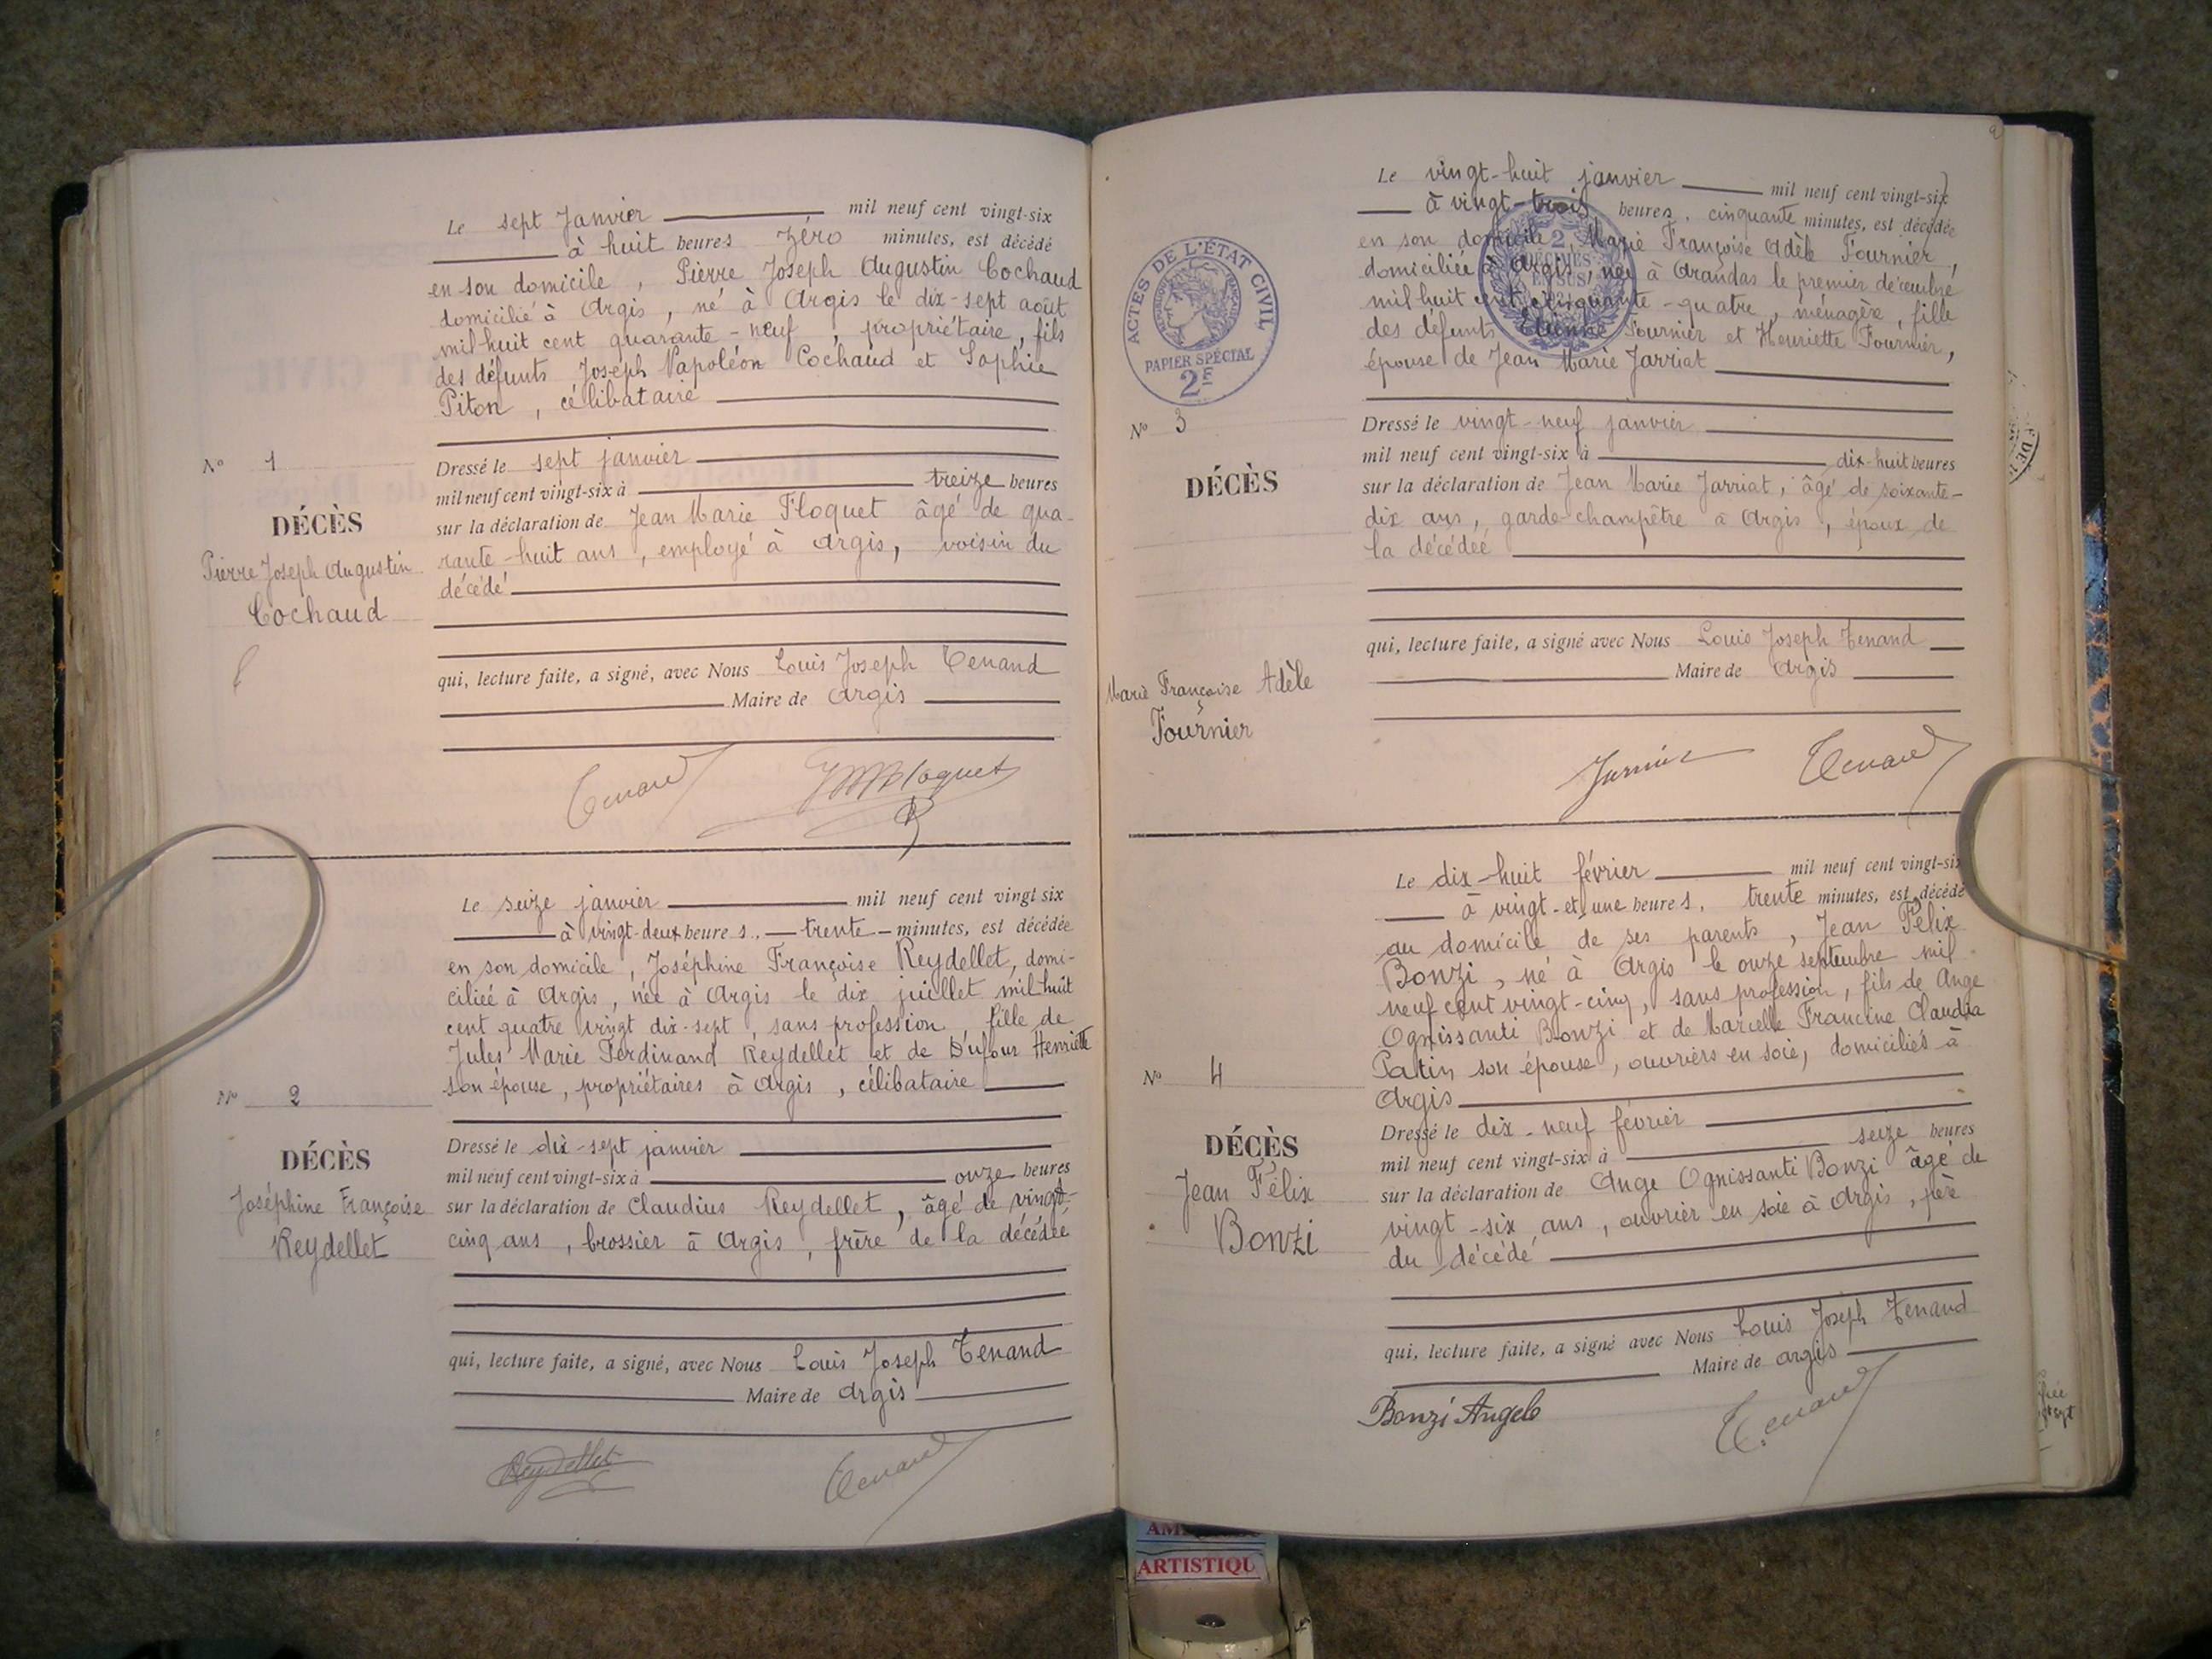 Le sept Janvier mil neuf cent vingt-six
à huit heures zéro minutes, est décédé
en son domicile, Pierre Joseph Augustin Cochaud
domicilié à Argis, né à Argis le dix-sept août
mil huit cent quarante-neuf, propriétaire, fils
des défunts Joseph Napoléon Cochaud et Sophie
Piton, célibataire
N° 1
DÉCÈS
Pierre Joseph Augustin
Cochaud
Dressé le sept janvier
mil neuf cent vingt-six à treize heures
sur la déclaration de Jean Marie Floquet âgé de qua-
rante-huit ans, employé à Argis, voisin du
décédé
qui, lecture faite, a signé, avec Nous Louis Joseph Tenand
Maire de Argis
Tenand JM Floquet
Le seize janvier mil neuf cent vingt six
à vingt-deux heures, trente minutes, est décédée
en son domicile, Joséphine Françoise Reydellet, domi-
ciliée à Argis, née à Argis le dix juillet mil huit
cent quatre vingt dix-sept, sans profession, fille de
Jules Marie Ferdinand Reydellet et de Dufour Henriette
son épouse, propriétaires à Argis, célibataire
N° 2
DÉCÈS
Joséphine Françoise
Reydellet
Dressé le dix-sept janvier
mil neuf cent vingt-six à onze heures
sur la déclaration de Claudius Reydellet, âgé de vingt-
cinq ans, brossier à Argis, frère de la décédée
qui, lecture faite, a signé, avec Nous Louis Joseph Tenand
Maire de Argis
Reydellet Tenand
Le vingt-huit janvier mil neuf cent vingt-six
à vingt-trois heures, cinquante minutes, est décédée
en son domicile, Marie Françoise Adèle Fournier,
domiciliée à Argis, née à Arandas le premier décembre
mil huit cent cinquante-quatre, ménagère, fille
des défunts Etienne Fournier et Henriette Fournier,
épouse de Jean Marie Jarriat
ACTES DE L'ÉTAT CIVIL
RÉPUBLIQUE FRANÇAISE
PAPIER SPÉCIAL
2F
2
DÉCIMES
EN SUS
N° 3
DÉCÈS
Marie Françoise Adèle
Fournier
Dressé le vingt-neuf janvier
mil neuf cent vingt-six à dix-huit heures
sur la déclaration de Jean Marie Jarriat, âgé de soixante-
dix ans, garde-champêtre à Argis, époux de
la décédée
qui, lecture faite, a signé avec Nous Louis Joseph Tenand
Maire de Argis
Jarriat Tenand
Le dix-huit février mil neuf cent vingt-six
à vingt-et-une heures, trente minutes, est décédé
au domicile de ses parents, Jean Félix
Bonzi, né à Argis le onze septembre mil
neuf cent vingt-cinq, sans profession, fils de Ange
Ognissanti Bonzi et de Marcelle Francine Claudia
Patin son épouse, ouvriers en soie, domiciliés à
Argis
N° 4
DÉCÈS
Jean Félix
Bonzi
Dressé le dix-neuf février
mil neuf cent vingt-six à seize heures
sur la déclaration de Ange Ognissanti Bonzi âgé de
vingt-six ans, ouvrier en soie à Argis, père
du décédé
qui, lecture faite, a signé avec Nous Louis Joseph Tenand
Maire de Argis
Bonzi Angelo Tenand
ARTISTIQU